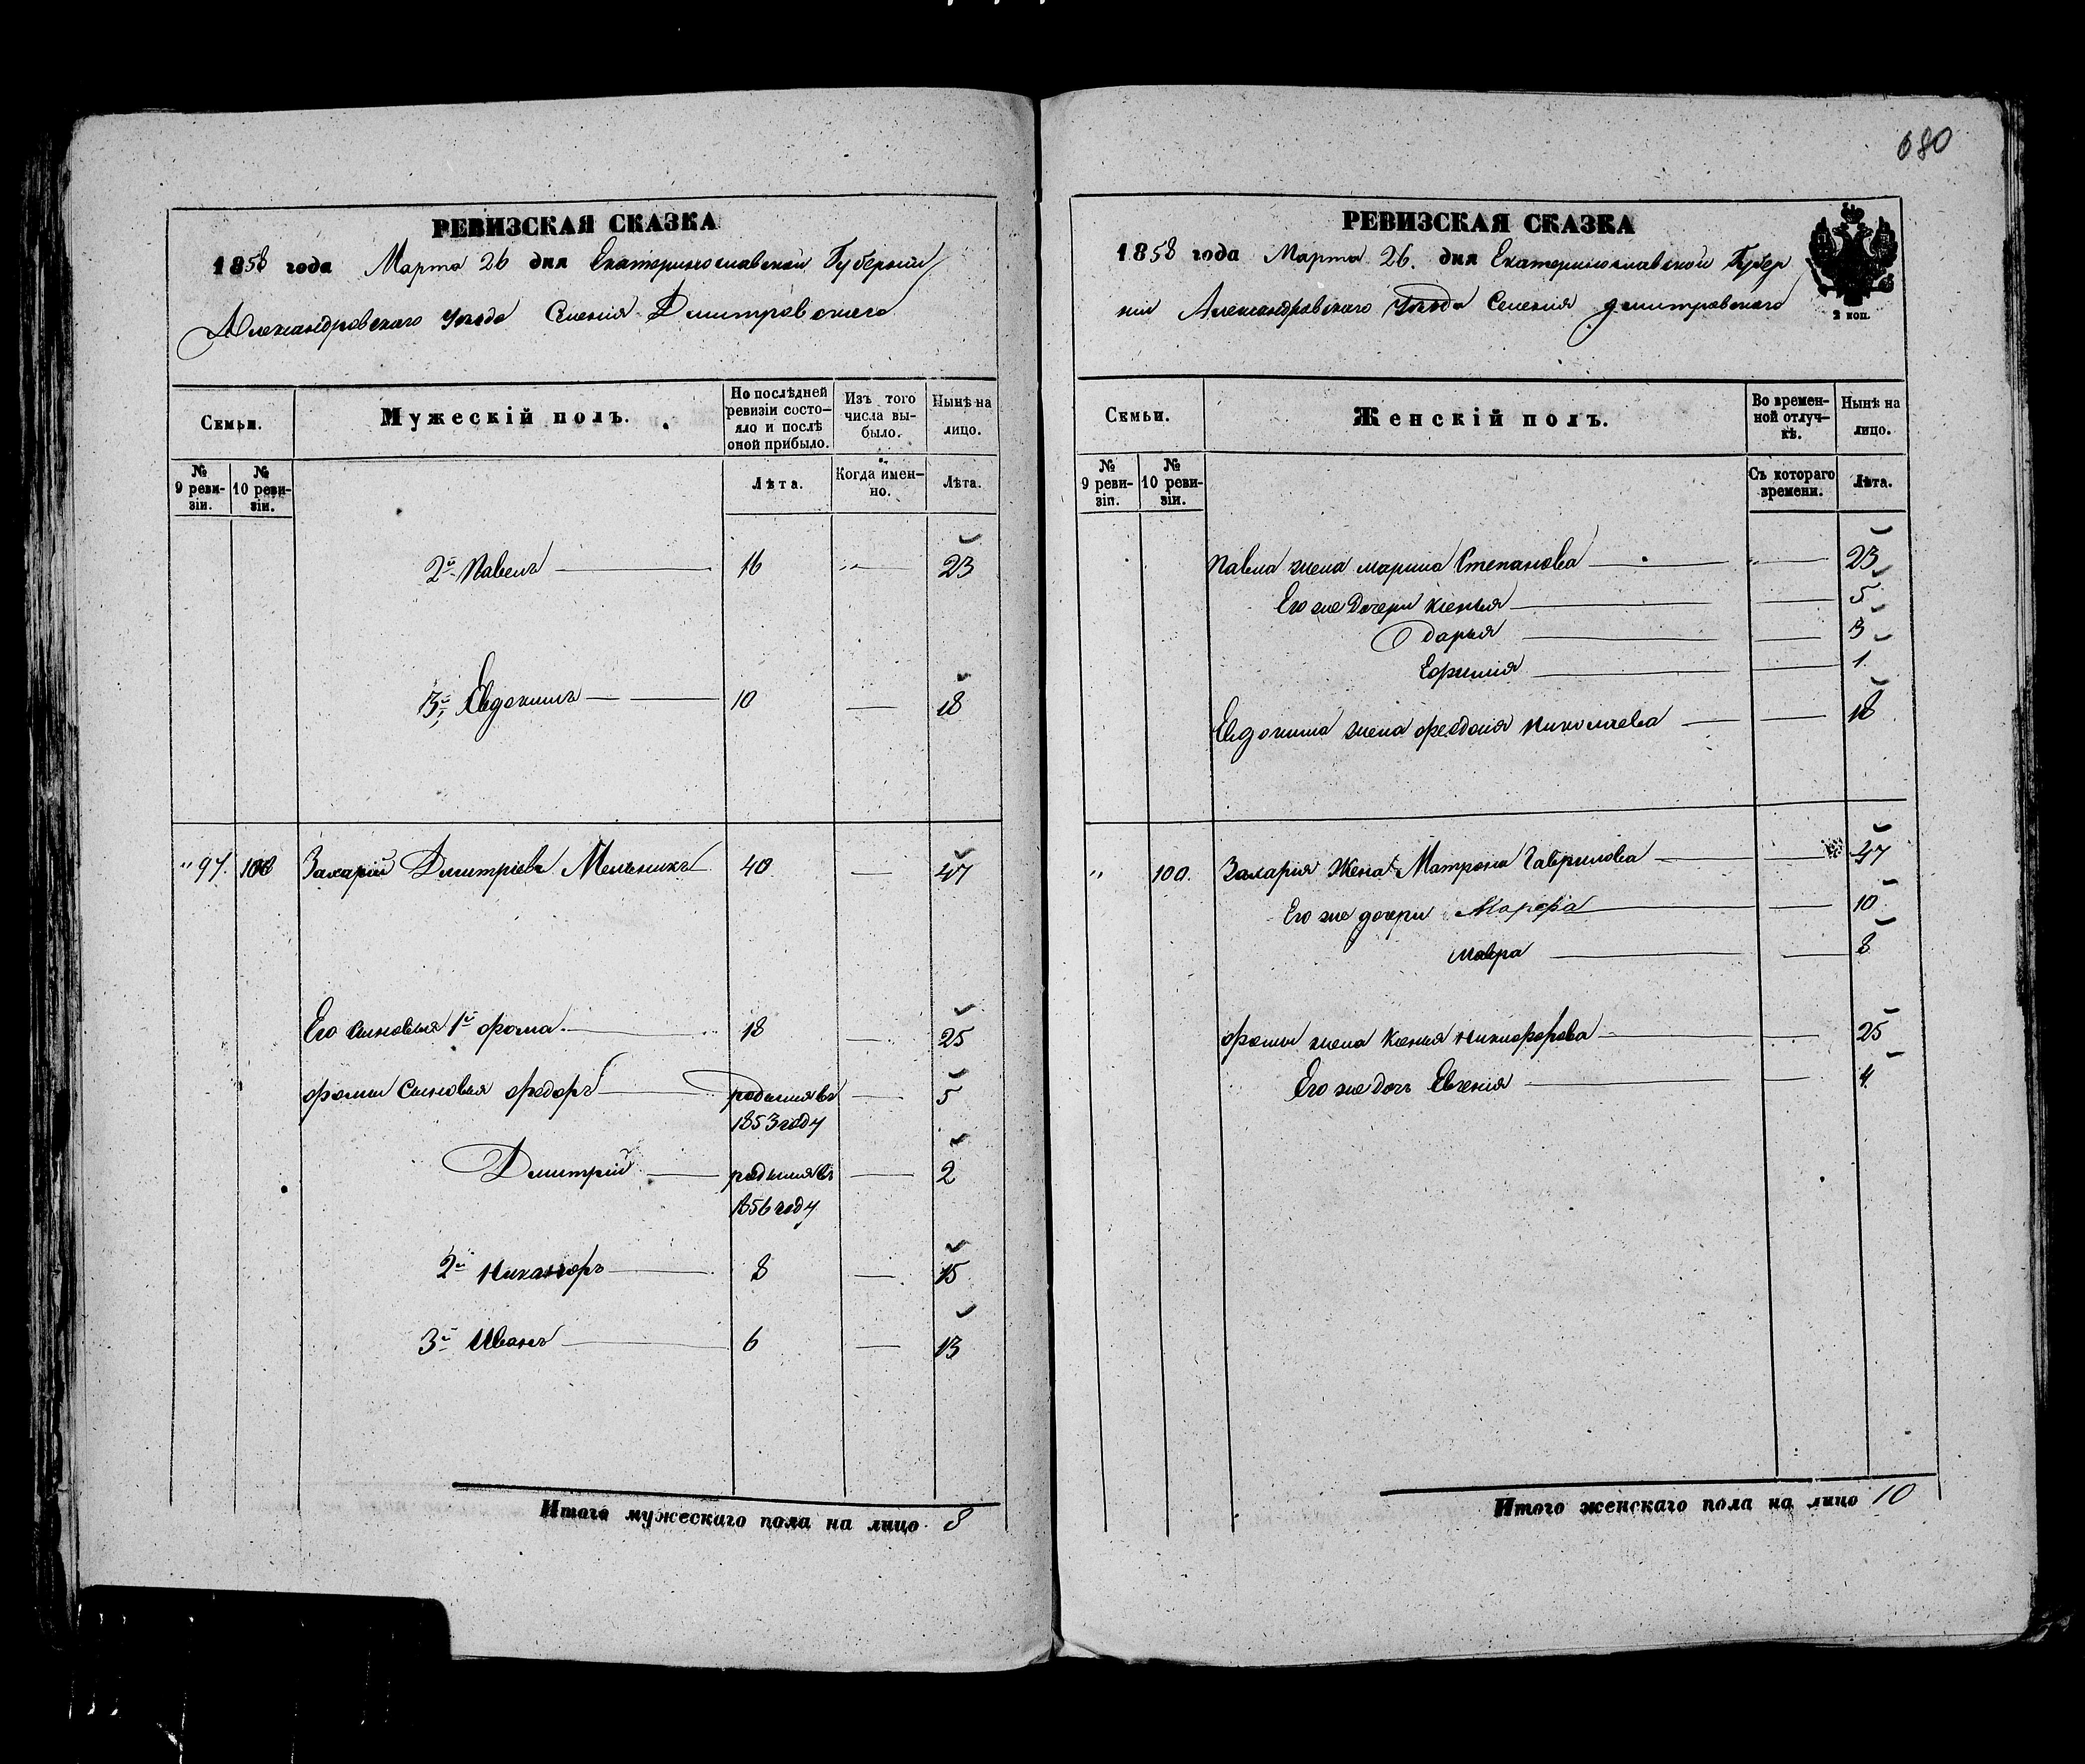 680
РЕВИЗСКАЯ СКАЗКА
1858 года Марта 26 дня Екатеринославской Губерніи
Александровскаго уезда Селенія Дмитровскаго
Семьи.
Мужескій полъ.
По послѣдней ревизіи состояло и послѣ оной прибыло.
Изъ того числа выбыло.
Нынѣ на лицо.
№ 9 ревизіи.
№ 10 ревизіи.
Лѣта.
Когда именно.
Лѣта.
2й Павелъ 16 23
3й Евдокимъ 10 18
" 97. 100 Захарій Дмитріевъ Мельникъ 40 47
Его сыновья 1й фома 18 25
фомы сыновья федоръ родился въ 5
1853 году
Дмитрій родился въ 2
1856 году
2й Никаноръ 8 15
3й Иванъ 6 13
Итого мужескаго пола на лицо 8
РЕВИЗСКАЯ СКАЗКА
1858 года Марта 26. дня Екатеринославской Губер
ніи Александровскаго Уезда Селенія дмитровскаго
2 коп.
Семьи.
Женскій полъ.
Во временной отлучкѣ.
Нынѣ на лицо.
№ 9 ревизіи.
№ 10 ревизіи.
Съ котораго времени.
Лѣта.
Павла жена марина Степанова " 23
Его же Дочери ксенья 5
дарья 3
Ефимія 1
Евдокима жена феодосія николаева 18
" 100. Захарія Жена Матрона Гаврилова 47
Его же дочери Марфа 10
мавра 8
фомы жена ксенья никифорова 25
Его же дочь Евгенія 4
Итого женскаго пола на лицо 10